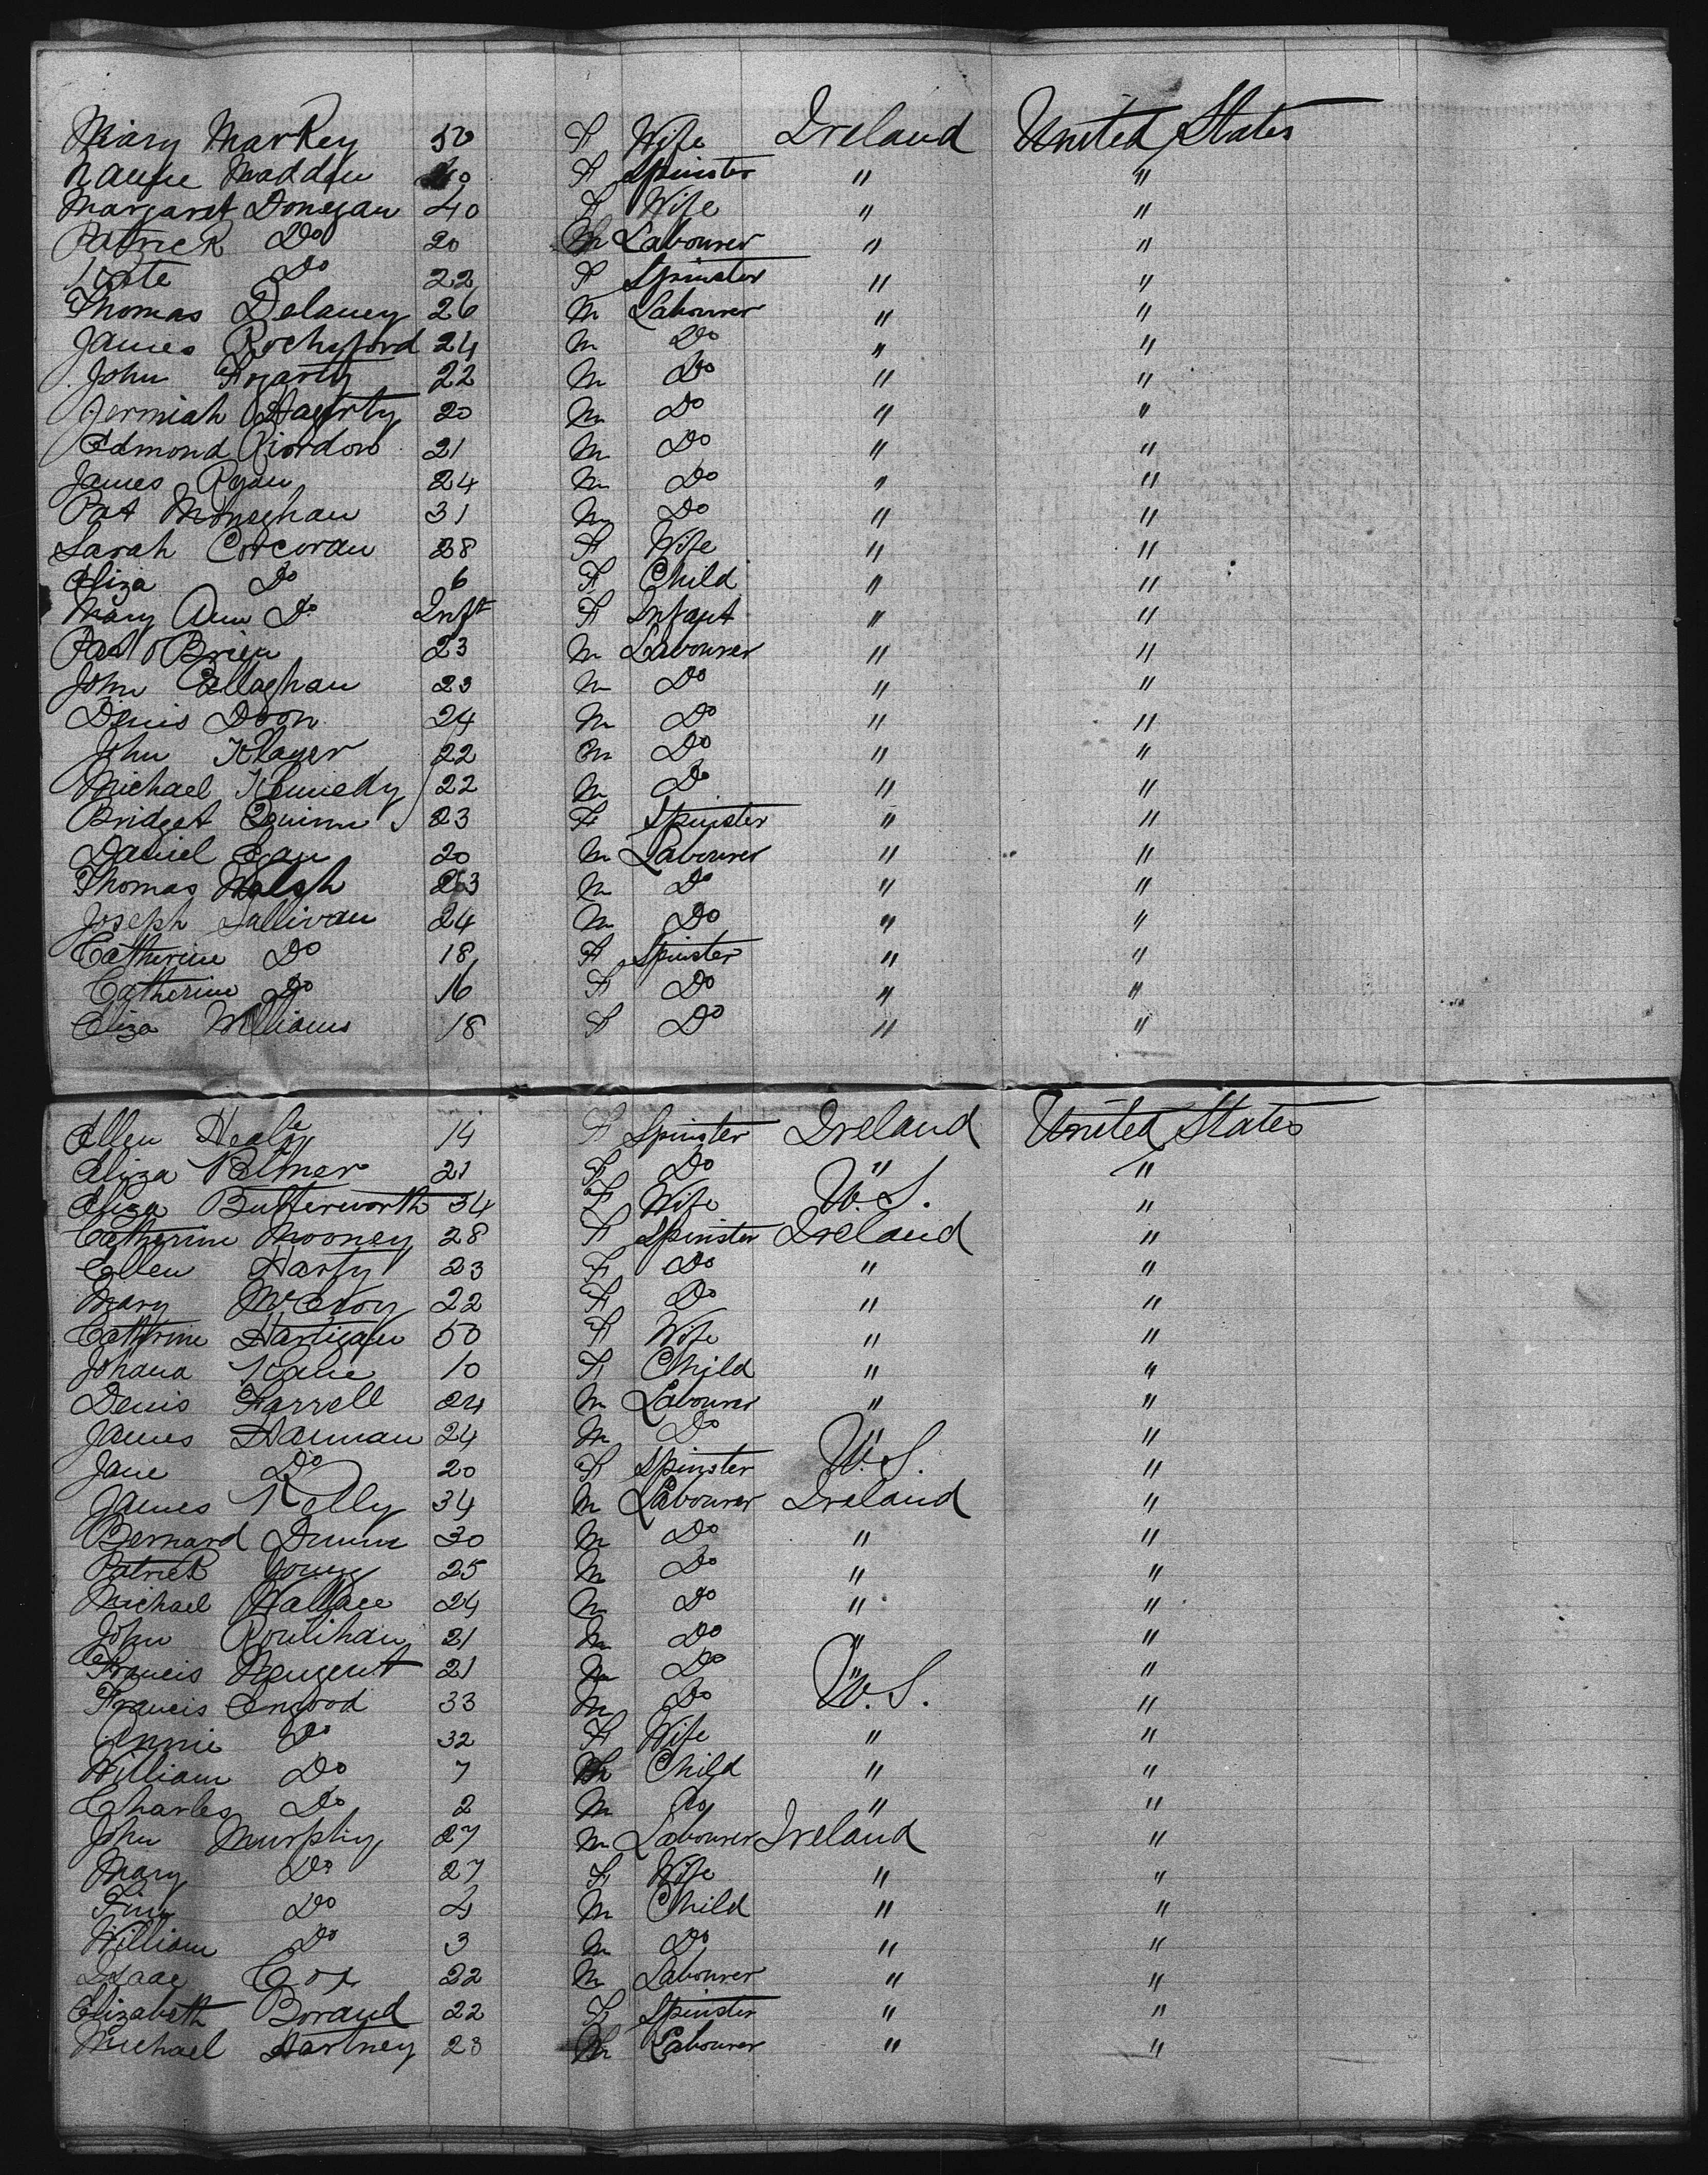 Mary Markey 50 F Wife Ireland United States
Nannie Madden 40 F Spinster " "
Margaret Donegan 40 F Wife " "
Patrick Do 20 M Labourer " "
Kate Do 22 F Spinster " "
Thomas Delaney 26 M Labourer " "
James Rochford 24 M Do " "
John Fogarty 22 M Do " "
Jermiah Hagerty 20 M Do " "
Edmond Riordon 21 M Do " "
James Ryan 24 M Do " "
Pat Monaghan 31 M Do " "
Sarah Corcoran 28 F Wife " "
Eliza Do 6 F Child " "
Mary Ann Do Inft F Infant " "
Pat O Brien 23 M Labourer " "
John Callaghan 23 M Do " "
Denis Doon 24 M Do " "
John 22 M Do " "
Michael Kennedy 22 M Do " "
Bridget Quinn 23 F Spinster " "
Daniel Egan 20 M Labourer " "
Thomas Walsh 23 M Do " "
Joseph Sullivan 24 M Do " "
Catherine Do 18 F Spinster " "
Catherine Do 16 F Do " "
Eliza Williams 18 F Do " "
Ellen 14 F Spinster Ireland United States
Eliza 21 F Do " "
Eliza Butterworth 34 F Wife U.S. "
Catherine Mooney 28 F Spinster Ireland "
Ellen Harty 23 F Do " "
Mary McEvoy 22 F Do " "
Cathrine Hartigan 50 F Wife " "
Johana Kane 10 F Child " "
Denis Farrell 24 M Labourer " "
James Hannan 24 M Do " "
Jane Do 20 F Spinster U.S. "
James Kelly 34 M Labourer Ireland "
Bernard Dunne 30 M Do " "
Patrick Young 25 M Do " "
Michael Wallace 24 M Do " "
John Roulihan 21 M Do " "
Francis Neugent 21 M Do " "
Francis 33 M Do U.S. "
Annie Do 32 F Wife " "
William Do 7 M Child " "
Charles Do 2 M Do " "
John Murphy 27 M Labourer Ireland "
Mary Do 27 F Wife " "
Do 4 M Child " "
William Do 3 M Do " "
Isaac Cox 22 M Labourer " "
Elizabeth Borand 22 F Spinster " "
Michael Hartney 23 M Labourer " "